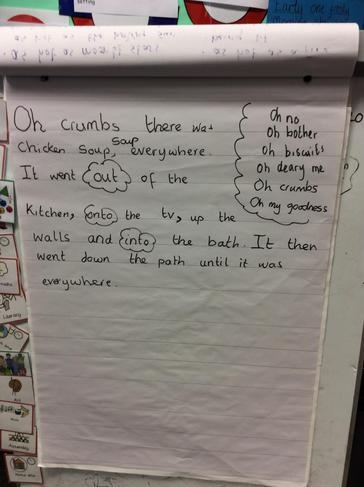 Setting
Oh crumbs there was
soup
Chicken soup, everywhere.
It went out of the
Kitchen, onto the tv, up the
walls and into the bath. It then
went down the path until it was
everywhere.
Oh no
Oh bother
Oh biscuits
Oh deary me
Oh crumbs
Oh my goodness
Literacy
Art
Assembly